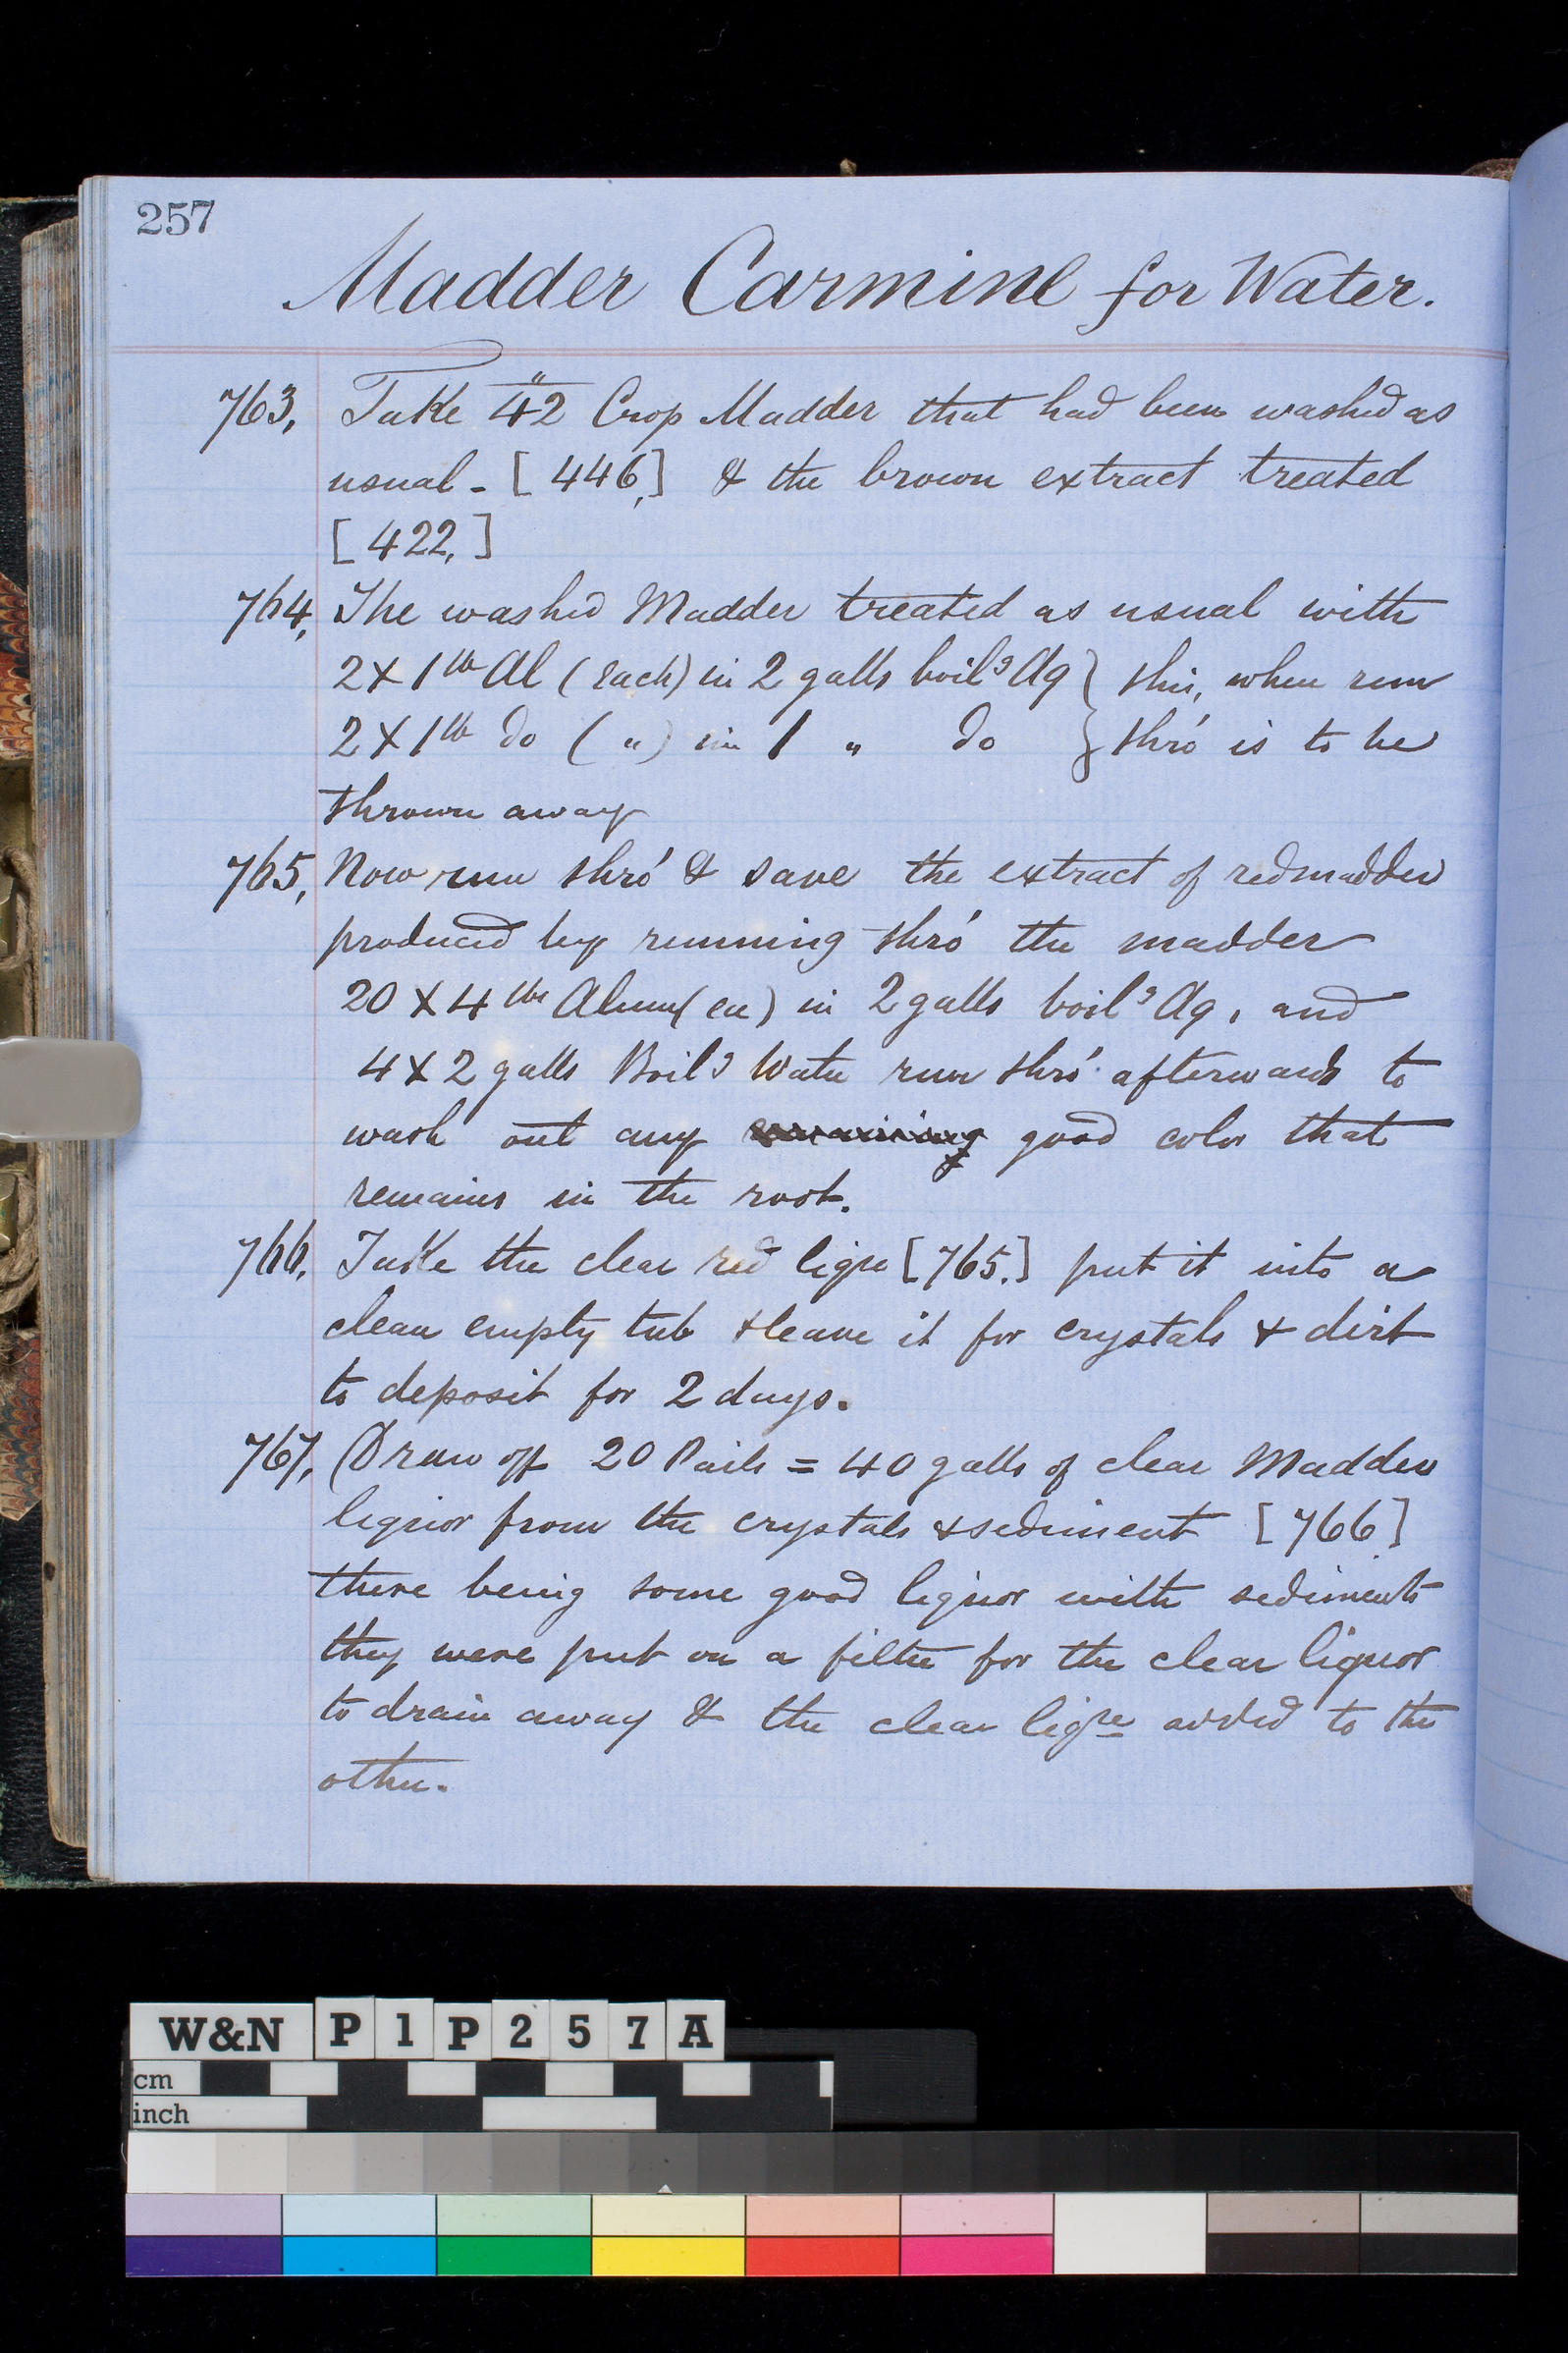 257
Madder Carmine for Water.
763, Take 42 Crop Madder that had been washed as
usual - [446,] & the brown extract treated
[422,]
764, The washed Madder treated as usual with
2 X 1 lb Al (each) in 2 galls boilg Aq } this, when run
2 X 1 lb do ( " ) in 1 " do } thro' is to be
thrown away
765, Now run thro' & save the extract of red madder
produced by running thro' the madder
20 X 4 lbs Alum (ea) in 2 galls boilg Aq, and
4 X 2 galls Boilg Water run thro' afterwards to
wash out any remaining good color that
remains in the root.
766, Take the clear red liqre [765.] put it into a
clean empty tub & leave it for crystals & dirt
to deposit for 2 days.
767, Draw off 20 Pails = 40 galls of clear Madder
liquor from the crystals & sediment [766]
there being some good liquor with sediments
they were put on a filter for the clear liquor
to drain away & the clear liqre added to the
other.
W&N P1P257A
cm
inch